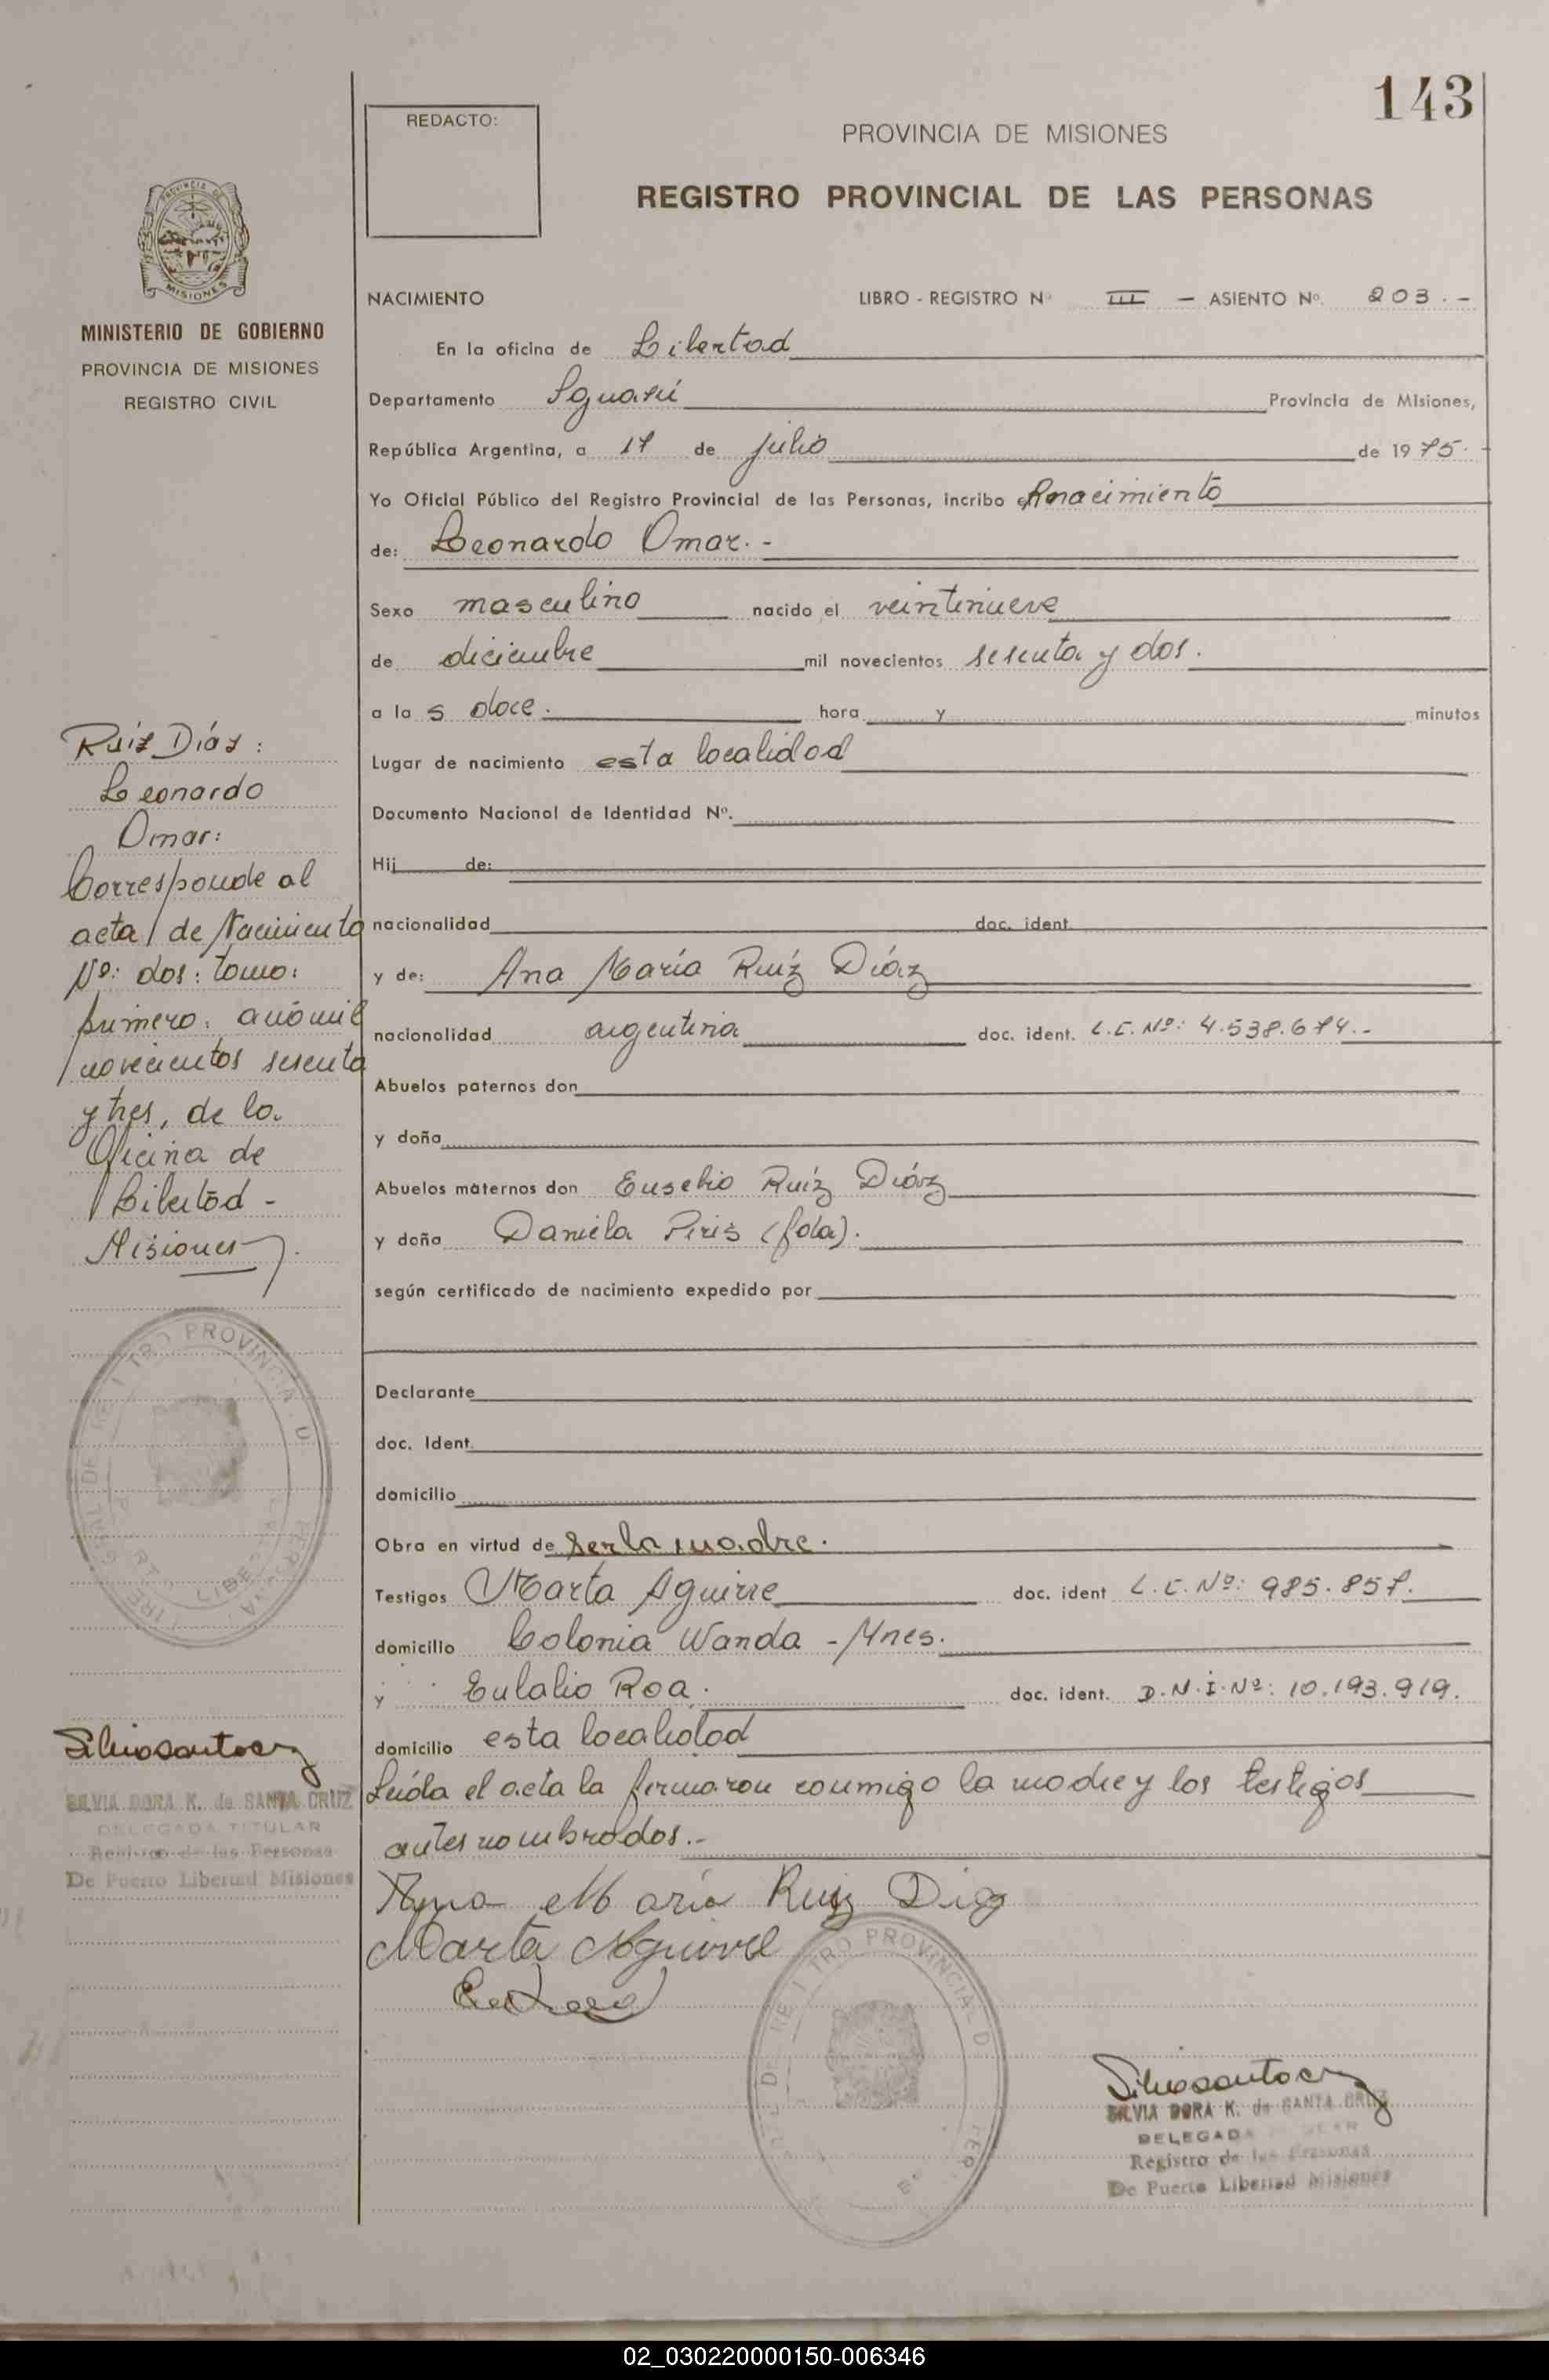 143
REDACTO:
PROVINCIA DE MISIONES
REGISTRO PROVINCIAL DE LAS PERSONAS
PROVINCIA DE
MISIONES
MINISTERIO DE GOBIERNO
PROVINCIA DE MISIONES
REGISTRO CIVIL
NACIMIENTO LIBRO - REGISTRO Nº III - ASIENTO Nº. 203.-
En la oficina de Libertad
Departamento Iguasú Provincia de Misiones,
República Argentina, a 17 de julio de 1975.-
Yo Oficial Público del Registro Provincial de las Personas, incribo el nacimiento
de: Leonardo Omar.-
Sexo masculino nacido el veintinueve
de diciembre mil novecientos sesenta y dos.
a las doce. hora y minutos
Lugar de nacimiento esta localidad
Documento Nacional de Identidad Nº.
Hij de:
nacionalidad doc. ident.
y de: Ana María Ruíz Díaz
nacionalidad argentina doc. ident. L.C. Nº: 4.538.674.-
Abuelos paternos don
y doña
Abuelos maternos don Eusebio Ruíz Díaz
y doña Daniela Piris (fda).
según certificado de nacimiento expedido por
Declarante
doc. Ident.
domicilio
Obra en virtud de ser la madre.
Testigos Marta Aguirre doc. ident L.C. Nº: 985.857.
domicilio Colonia Wanda - Mnes.
y Eulalio Roa. doc. ident. D.N.I. Nº: 10.193.919.
domicilio esta localidad
Leída el acta la firmaron conmigo la madre y los testigos
antes nombrados.-
Ana María Ruiz Diaz
Marta Aguirre
Ruíz Díaz:
Leonardo
Omar:
Corresponde al
acta de Nacimiento
Nº: dos: tomo:
primero: año mil
novecientos sesenta
y tres, de la
Oficina de
Libertad -
Misiones.
Silvia Santa Cruz
SILVIA DORA K. de SANTA CRUZ
DELEGADA TITULAR
Registro de las Personas
De Puerto Libertad Misiones
Silvia Santa Cruz
SILVIA DORA K. de SANTA CRUZ
DELEGADA TITULAR
Registro de las Personas
De Puerto Libertad Misiones
02_030220000150-006346